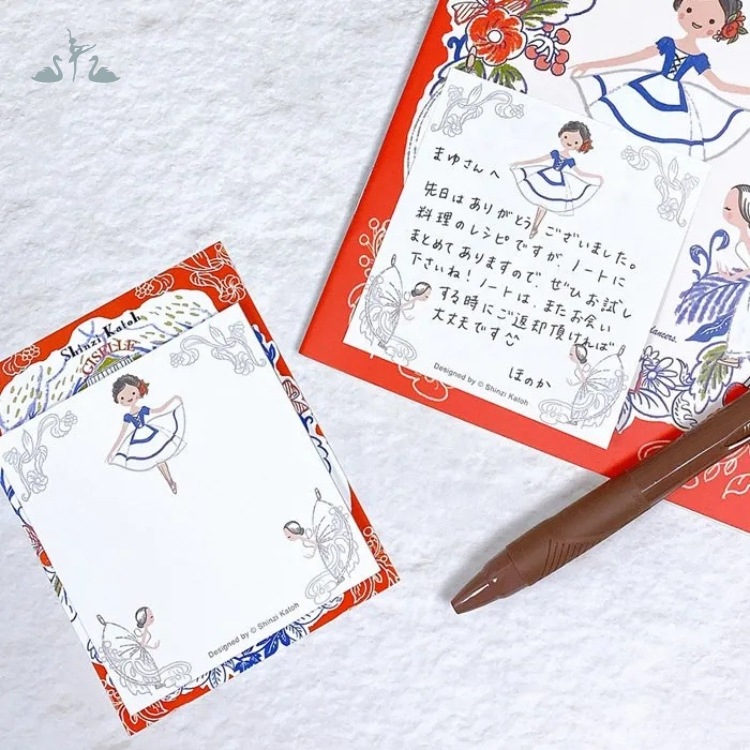 まゆさんへ
先日はありがとうございました。
料理のレシピですが、ノートに
まとめてありますので、ぜひお試し
下さいね！ノートは、またお会い
する時にご返却頂ければ
大丈夫です
ほのか
Designed by © Shinzi Katoh
Lancers.
Shinzi Katoh
GISELLE
Designed by © Shinzi Katoh